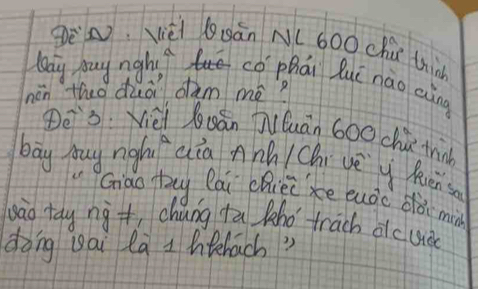 Đề 2. Viết bvăn NL 600 chữ trình
bày suy nghĩ có phải lúc nào cũng
nên theo đuổi đam mê?
Đề 3: Viết bvăn Nluận 600 chữ trình
bày suy nghĩ của Anh/Chị về ý kiến sau
"Giao tay lái chiếc xe cuộc đời mình
vào tay ng ≠, chúng ta khó trách đc việc
đóng vai là 1 hkhách"